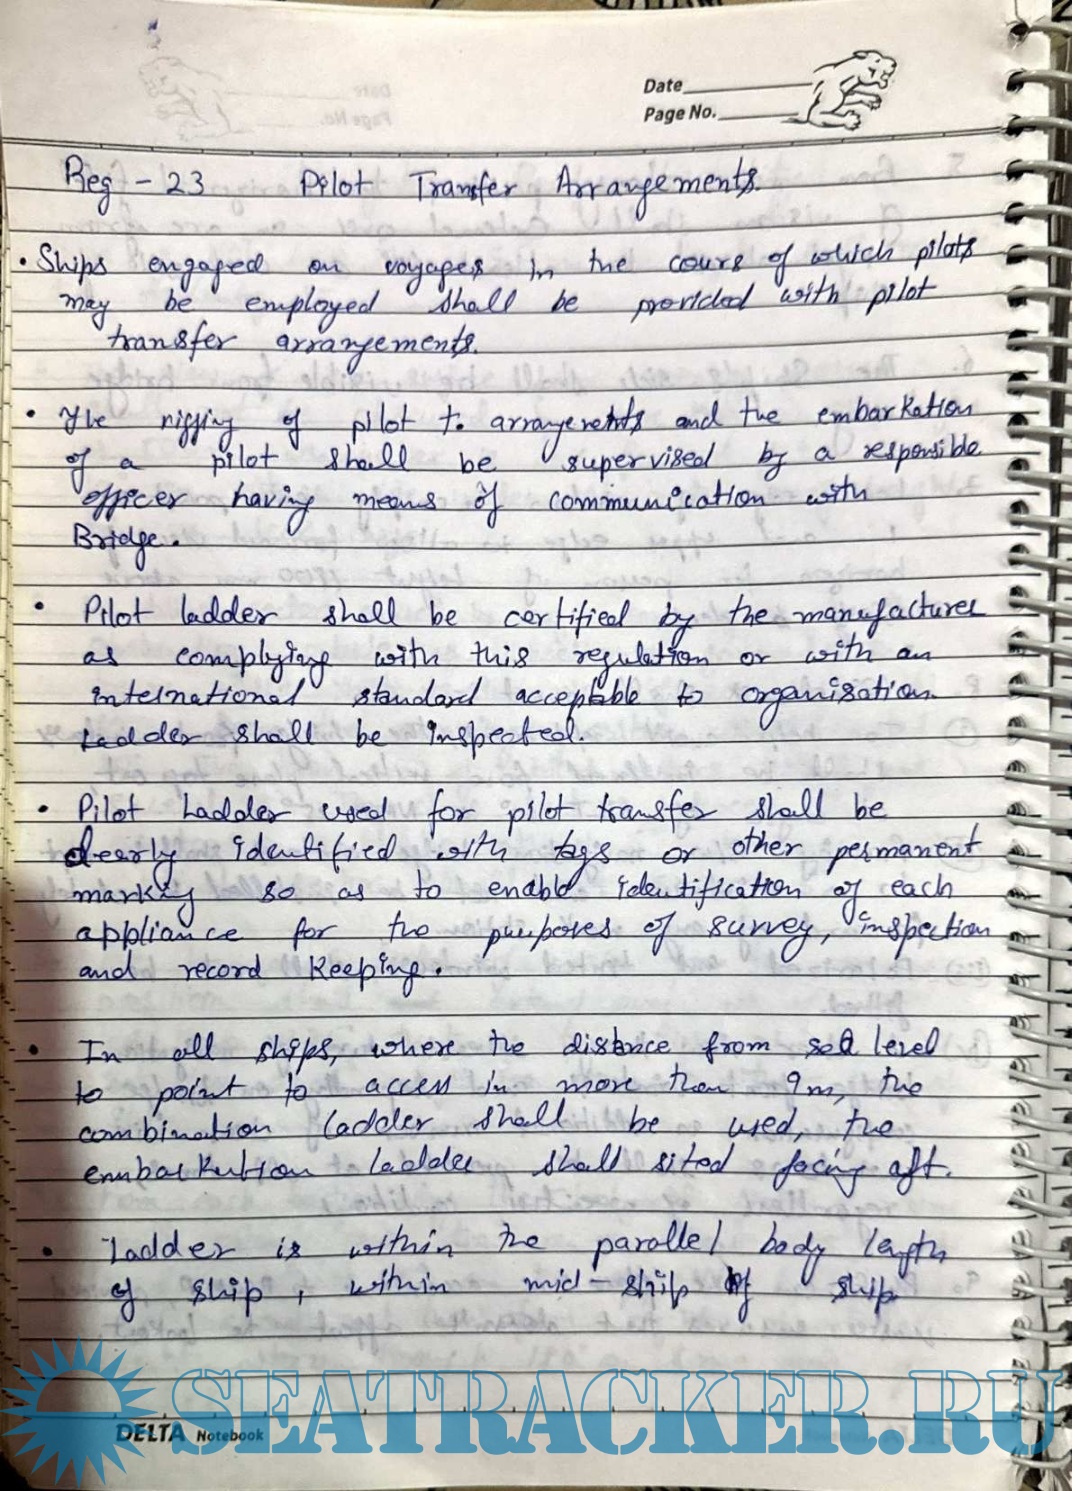 Date
Page No.
Reg - 23 Pilot Transfer Arrangements.
• Ships engaged on voyages in the cours of which pilots
may be employed shall be provided with pilot
transfer arrangements.
• The rigging of pilot t. arrangements and the embarkation
of a pilot shall be supervised by a responsible
officer having means of communication with
Bridge.
• Pilot ladder shall be certified by the manufacturer
as complying with this regulation or with an
international standard acceptable to organisation.
Ladder shall be inspected.
• Pilot Ladder used for pilot transfer shall be
clearly identified with tags or other permanent
marking so as to enable identification of each
appliance for the purposes of survey, inspection
and record keeping.
• In all ships, where the distance from sea level
to point to access in more than 9m, the
combination ladder shall be used, the
embarkation ladder shall sited facing aft.
• Ladder is within the parallel body length
of ship, within mid-ship of ship
SEATRACKER.RU
DELTA Notebook